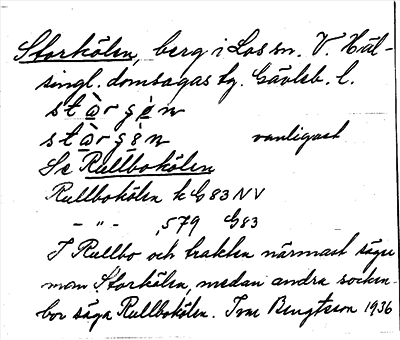 Storkölen, berg i Los sn. V. Häl-
singl. domsagas tg. Gävleb. l.
stàrçø̀n
stàrçø̀n vanligast
Se Rullbokölen
Rullbokölen k G83 NV
- " - , 579 G83
I Rullbo och trakten närmast säger
man Storkölen, medan andra socken-
bor säga Rullbokölen. Ivar Bengtsson 1936